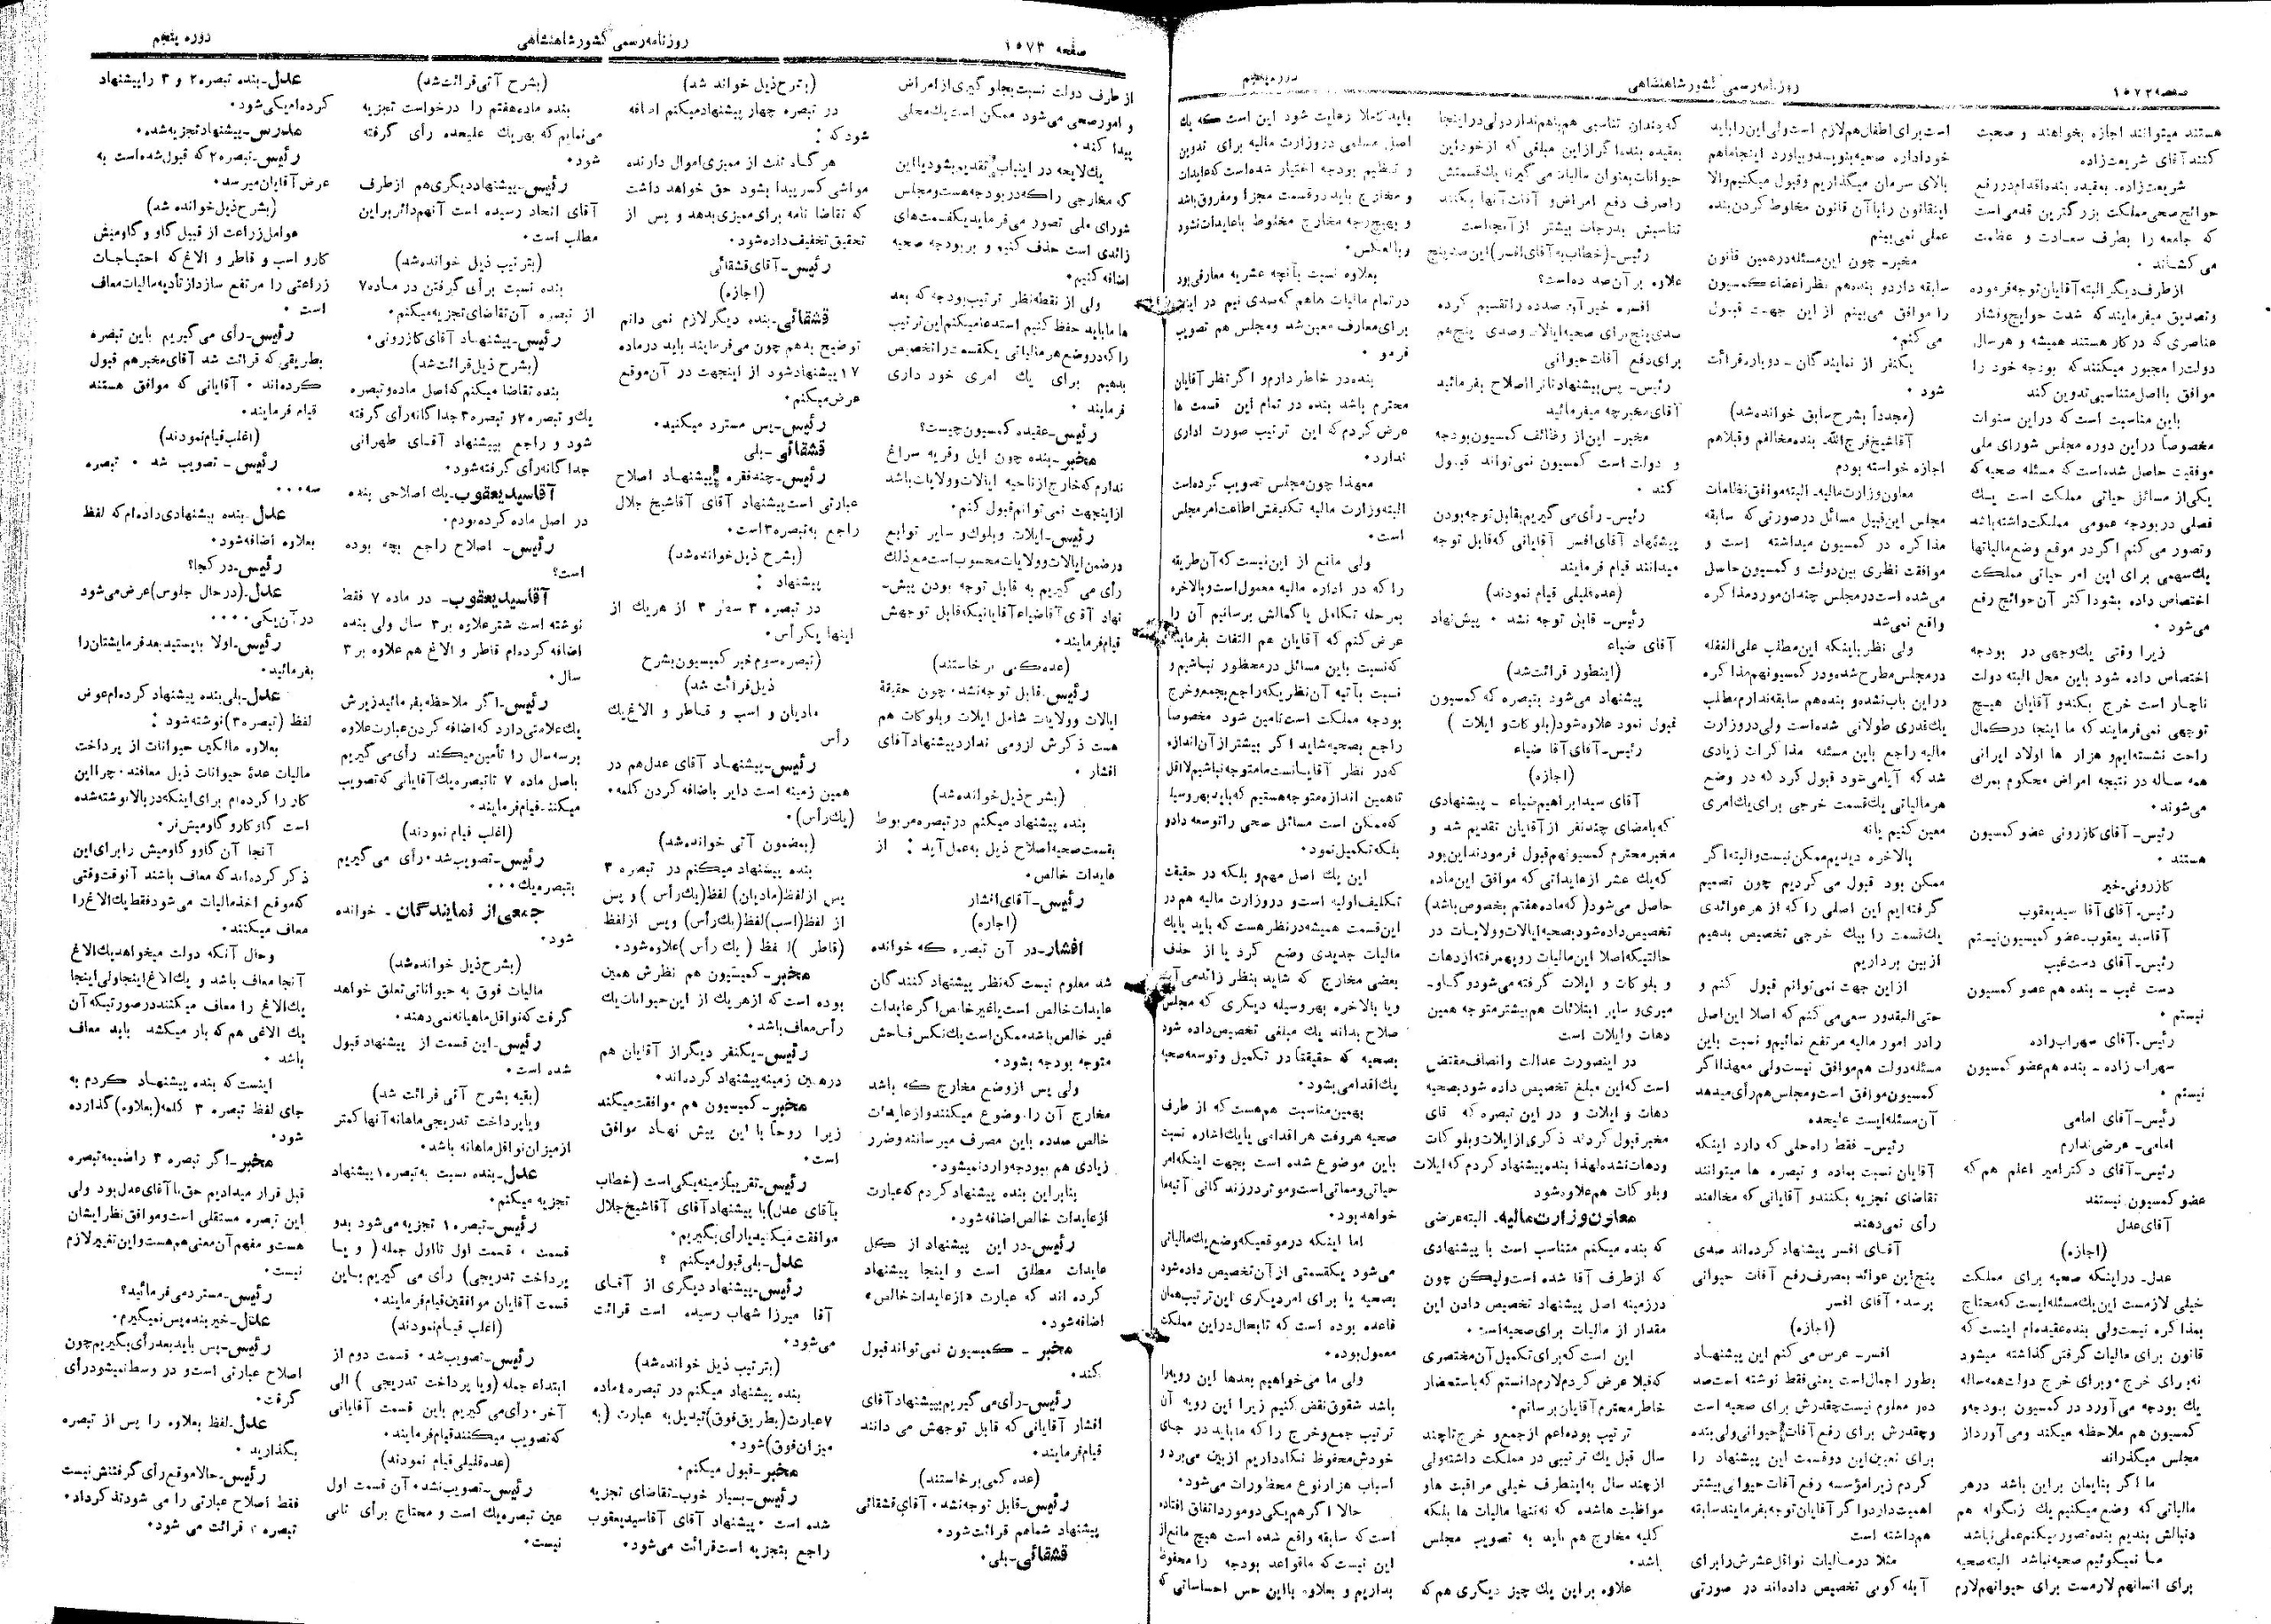 صفحه ۱۵۷۲
روزنامه رسمی کشور شاهنشاهی
دوره پنجم
هستند میتوانند اجازه بخواهند و صحبت
کنند آقای شریعت‌زاده
شریعت‌زاده ـ بعقیده بنده اقدام در رفع
حوائج صحی مملکت بزرگترین قدمی است
که جامعه را بطرف سعادت و عظمت
می‌کشاند .
از طرف دیگر البته آقایان توجه فرموده
و تصدیق میفرمایند که شدت حوایج و فشار
عناصری که در کار هستند همیشه و هر سال
دولت را مجبور میکنند که بودجه خود را
موافق با اصل متناسبی تدوین کند
باین مناسبت است که در این سنوات
مخصوصاً در این دوره مجلس شورای ملی
موفقیت حاصل شده است که مسئله صحیه که
یکی از مسائل حیاتی مملکت است یك
فصلی در بودجه عمومی مملکت داشته باشد
و تصور می‌کنم اگر در موقع وضع مالیاتها
یك سهمی برای این امر حیاتی مملکت
اختصاص داده بشود اکثر آن حوائج رفع
می‌شود .
زیرا وقتی یك وجهی در بودجه
اختصاص داده شود باین محل البته دولت
ناچار است خرج بکند و آقایان هیچ
توجهی نمی‌فرمایند که ما اینجا در کمال
راحت نشسته‌ایم و هزار ها اولاد ایرانی
همه ساله در نتیجه امراض محکوم بمرك
می‌شوند .
رئیس ـ آقای کازرونی عضو کمسیون
هستند .
کازرونی ـ خیر
رئیس ـ آقای آقا سید یعقوب
آقا سید یعقوب ـ عضو کمسیون نیستم
رئیس ـ آقای دست‌غیب
دست غیب ـ بنده هم عضو کمسیون
نیستم .
رئیس ـ آقای سهراب‌زاده
سهراب زاده ـ بنده هم عضو کمسیون
نیستم .
رئیس ـ آقای امامی
امامی ـ عرضی ندارم
رئیس ـ آقای دکتر امیر اعلم هم که
عضو کمسیون نیستند
آقای عدل
(اجازه)
عدل ـ در اینکه صحیه برای مملکت
خیلی لازمست این یك مسئله ایست که محتاج
بمذاکره نیست ولی بنده عقیده‌ام اینست که
قانون برای مالیات گرفتن گذاشته میشود
نه برای خرج . و برای خرج دولت همه ساله
یك بودجه می‌آورد در کمسیون بودجه و
کمسیون هم ملاحظه میکند و می‌آورد از
مجلس میگذراند
ما اگر بنایمان براین باشد در هر
مالیاتی که وضع میکنیم یك زنگوله هم
دنبالش بندیم بنده تصور میکنم عملی نباشد
ما نمیگوئیم صحیه نباشد البته صحیه
برای انسانهم لازمست برای حیوانهم لازم
است برای اطفال هم لازم است ولی این را باید
خود اداره صحیه بنویسد و بیاورد اینجا ما هم
بالای سرمان میگذاریم و قبول میکنیم والا
اینقانون را با آن قانون مخلوط کردن بنده
عملی نمی‌بینم
مخبر ـ چون این مسئله در همین قانون
سابقه دارد و بنده هم نظر اعضاء کمسیون
را موافق می‌بینم از این جهت قبول
می کنم .
یکنفر از نمایندگان ـ دوباره قرائت
شود .
(مجدداً بشرح سابق خوانده شد)
آقا شیخ فرج‌الله ـ بنده مخالفم و قبلا هم
اجازه خواسته بودم
معاون وزارت مالیه ـ البته موافق نظامات
مجلس این قبیل مسائل در صورتی که سابقه
مذاکره در کمسیون میداشته است و
موافقت نظری بین دولت و کمسیون حاصل
می‌شده است در مجلس چندان مورد مذاکره
واقع نمی‌شد
ولی نظر باینکه این مطلب علی الغفله
در مجلس مطرح شده و در کمسیون هم مذاکره
در این باب نشده و بنده هم سابقه ندارم مطلب
یك قدری طولانی شده است ولی در وزارت
مالیه راجع باین مسئله مذاکرات زیادی
شد که آیا می‌شود قبول کرد که در وضع
هر مالیاتی یك قسمت خرجی برای یك امری
معین کنیم یا نه
بالاخره دیدیم ممکن نیست والبته اگر
ممکن بود قبول می کردیم چون تصمیم
گرفته‌ایم این اصلی را که از هر عوائدی
یك قسمت را بیك خرجی تخصیص بدهیم
از بین برداریم
از این جهت نمی‌توانم قبول کنم و
حتی‌المقدور سعی می‌کنم که اصلا این اصل
را در امور مالیه مرتفع نمائیم و نسبت باین
مسئله دولت هم موافق نیست ولی معهذا اگر
کمسیون موافق است و مجلس هم رأی میدهد
آن مسئله ایست علیحده
رئیس ـ فقط راه حلی که دارد اینکه
آقایان نسبت بماده و تبصره ها میتوانند
تقاضای تجزیه بکنند و آقایانی که مخالفند
رأی نمی‌دهند
آقای افسر پیشنهاد کرده‌اند صدی
پنج این عوائد بمصرف رفع آفات حیوانی
برسد . آقای افسر
(اجازه)
افسر ـ عرض می کنم این پیشنهاد
بطور اجمال است یعنی فقط نوشته است صد
ده و معلوم نیست چقدرش برای صحیه است
و چقدرش برای رفع آفات حیوانی ولی بنده
برای تعیین این دو قسمت این پیشنهاد را
کردم زیرا مؤسسه رفع آفات حیوانی بیشتر
اهمیت دارد و اگر آقایان توجه بفرمایند سابقه
هم داشته است
مثلا در مالیات نواقل عشرش را برای
آبله کوبی تخصیص داده‌اند در صورتی
که چندان تناسبی هم باهم ندارد ولی در اینجا
بعقیده بنده اگر از این مبلغی که از خود این
حیوانات بعنوان مالیات می گیرند یك قسمتش
را صرف دفع امراض و آفات آنها بکنند
تناسبش بدرجات بیشتر از آنجا است
رئیس ـ (خطاب به آقای افسر) این صد پنج
علاوه بر آن صد ده است؟
افسر ـ خیر آن صدده را تقسیم کرده
صدی پنج برای صحیه ایالات و صدی پنج هم
برای دفع آفات حیوانی
رئیس ـ پس پیشنهادتان را اصلاح بفرمائید
آقای مخبر چه میفرمائید
مخبر ـ این از وظائف کمسیون بودجه
و دولت است کمسیون نمی‌تواند قبول
کند .
رئیس ـ رأی می گیریم بقابل توجه بودن
پیشنهاد آقای افسر آقایانی که قابل توجه
میدانند قیام فرمایند
(عده قلیلی قیام نمودند)
رئیس ـ قابل توجه نشد . پیش‌نهاد
آقای ضیاء
(اینطور قرائت شد)
پیشنهاد می‌شود بتبصره که کمسیون
قبول نمود علاوه شود (بلوکات و ایلات )
رئیس ـ آقای آقا ضیاء
(اجازه)
آقای سید ابراهیم ضیاء ـ پیشنهادی
که بامضای چند نفر از آقایان تقدیم شد و
مخبر محترم کمسیون هم قبول فرمودند این بود
که یك عشر از عایداتی که موافق این ماده
حاصل می‌شود (که ماده هفتم بخصوص باشد)
تخصیص داده شود بصحیه ایالات و ولایات در
حالتیکه اصلا این مالیات رویهمرفته از دهات
و بلوکات و ایلات گرفته می‌شود و گاو ـ
میری و سایر ابتلائات هم بیشتر متوجه همین
دهات و ایلات است
در اینصورت عدالت و انصاف مقتضی
است که این مبلغ تخصیص داده شود بصحیه
دهات و ایلات و در این تبصره که آقای
مخبر قبول کردند ذکری از ایلات و بلوکات
و دهات نشده لهذا بنده پیشنهاد کردم که ایلات
و بلوکات هم علاوه شود
معاون وزارت مالیه ـ البته عرضی
که بنده میکنم متناسب است با پیشنهادی
که از طرف آقا شده است ولیکن چون
در زمینه اصل پیشنهاد تخصیص دادن این
مقدار از مالیات برای صحیه است .
این است که برای تکمیل آن مختصری
که قبلا عرض کردم لازم دانستم که باستحضار
خاطر محترم آقایان برسانم .
ترتیب بوده اعم از جمع و خرج تا چند
سال قبل یك ترتیبی در مملکت داشته ولی
از چند سال به اینطرف خیلی مراقبت ها و
مواظبت ها شده که نه تنها مالیات ها بلکه
کلیه مخارج هم باید به تصویب مجلس
باشد .
علاوه بر این یك چیز دیگری هم که
باید کاملا رعایت شود این است که یك
اصل مسلمی در وزارت مالیه برای تدوین
و تنظیم بودجه اختیار شده است که عایدات
و مخارج باید در دو قسمت مجزا و مفروق باشد
و بهیچ وجه مخارج مخلوط با عایدات نشود
و بالعکس .
بعلاوه نسبت بآنچه عشریه معارفی بود
در تمام مالیات ها هم که صدی نیم در اینجا
برای معارف معین شد و مجلس هم تصویب
فرمود .
بنده در خاطر دارم و اگر نظر آقایان
محترم باشد بنده در تمام این قسمت ها
عرض کردم که این ترتیب صورت اداری
ندارد .
معهذا چون مجلس تصویب کرده است
البته وزارت مالیه تکلیفش اطاعت امر مجلس
است .
ولی مانع از این نیست که آن طریقه
را که در اداره مالیه معمول است و بالاخره
بمرحله تکامل یا کمالش برسانیم آن را
عرض کنم که آقایان هم التفات بفرمایند
که نسبت باین مسائل در محظور نباشیم و
نسبت بآتیه آن نظریکه راجع بجمع و خرج
بودجه مملکت است تامین شود مخصوصاً
راجع بصحیه شاید اگر بیشتر از آن اندازه
که در نظر آقایانست ما متوجه نباشیم لااقل
تا همین اندازه متوجه هستیم که باید بهر وسیله
که ممکن است مسائل صحی را توسعه داد و
بلکه تکمیل نمود .
این یك اصل مهم و بلکه در حقیقت
تکلیف اولیه است و در وزارت مالیه هم در
این قسمت همیشه در نظر هست که باید با یك
مالیات جدیدی وضع کرد یا از حذف
بعضی مخارج که شاید بنظر زائد می‌آید
و یا بالاخره بهر وسیله دیگری که مجلس
صلاح بداند یك مبلغی تخصیص داده شود
بصحیه که حقیقتاً در تکمیل و توسعه صحیه
یك اقدامی بشود .
بهمین مناسبت هم هست که از طرف
صحیه هر وقت هر اقدامی یا یك اشاره نسبت
باین موضوع شده است بجهت اینکه امر
حیاتی و مماتی است و موثر در زندگانی آتیه ما
خواهد بود .
اما اینکه در موقعیکه وضع یك مالیاتی
می‌شود یکقسمتی از آن تخصیص داده شود
بصحیه یا برای امر دیگری این ترتیب همان
قاعده بوده است که تا بحال در این مملکت
معمول بوده .
ولی ما می‌خواهیم بعدها این رویه را
باشد شقوق نقض کنیم زیرا این رویه آن
ترتیب جمع و خرج را که ما باید در جای
خودش محفوظ نگاه داریم از بین می‌برد و
اسباب هزار نوع محظورات می‌شود .
حالا اگر هم یکی دو مورد اتفاق افتاده
است که سابقه واقع شده است هیچ مانع از
این نیست که ما قواعد بودجه را محفوظ
بداریم و بعلاوه با این حس احساساتی که
صفحه ۱۵۷۳
روزنامه رسمی کشور شاهنشاهی
دوره پنجم
از طرف دولت نسبت بجلوگیری از امراض
و امور صحی می‌شود ممکن است یك محلی
پیدا کند .
یك لایحه در اینباب تقدیم بشود یا این
که مخارجی را که در بودجه هست و مجلس
شورای ملی تصور می‌فرماید یکقسمت‌های
زائدی است حذف کنیم و بر بودجه صحیه
اضافه کنیم .
ولی از نقطه نظر ترتیب بودجه که بعد
ها ما باید حفظ کنیم استدعا میکنم این ترتیب
را که در وضع هر مالیاتی یکقسمت را تخصیص
بدهیم برای یك امری خود داری
فرمایند .
رئیس ـ عقیده کمسیون چیست؟
مخبر ـ بنده چون ایل و قریه سراغ
ندارم که خارج از ناحیه ایالات و ولایات باشد
از اینجهت نمی‌توانم قبول کنم .
رئیس ـ ایلات و بلوك و سایر توابع
در ضمن ایالات و ولایات محسوب است مع ذلك
رأی می گیریم به قابل توجه بودن پیش ـ
نهاد آقای آقا ضیاء آقایانیکه قابل توجهش
قیام فرمایند .
(عده کمی بر خاستند)
رئیس ـ قابل توجه نشد . چون حقیقة
ایالات و ولایات شامل ایلات و بلوکات هم
هست ذکرش لزومی ندارد پیشنهاد آقای
افشار .
(بشرح ذیل خوانده شد)
بنده پیشنهاد میکنم در تبصره مربوط
بقسمت صحیه اصلاح ذیل به عمل آید : از
عایدات خالص .
رئیس ـ آقای افشار
(اجازه)
افشار ـ در آن تبصره که خوانده
شد معلوم نیست که نظر پیشنهاد کنندگان
عایدات خالص است یا غیر خالص اگر عایدات
غیر خالص باشد ممکن است یك نکس فاحش
متوجه بودجه بشود .
ولی پس از وضع مخارج که باشد
مخارج آن را وضوع میکنند و از عایدات
خالص صدده باین مصرف میرسانند و ضرر
زیادی هم ببودجه وارد نمیشود .
بنابراین بنده پیشنهاد کردم که عبارت
از عایدات خالص اضافه شود .
رئیس ـ در این پیشنهاد از کل
عایدات مطلق است و اینجا پیشنهاد
کرده اند که عبارت «از عایدات خالص»
اضافه شود .
مخبر ـ کمیسیون نمی‌تواند قبول
کند .
رئیس ـ رأی می گیریم بپیشنهاد آقای
افشار آقایانی که قابل توجهش می دانند
قیام فرمایند .
(عده کمی برخاستند)
رئیس ـ قابل توجه نشد . آقای قشقائی
پیشنهاد شما هم قرائت شود .
قشقائی ـ بلی .
(بشرح ذیل خوانده شد)
در تبصره چهار پیشنهاد میکنم اضافه
شود که :
هر گاه ثلث از ممیزی اموال دارنده
مواشی کسر پیدا بشود حق خواهد داشت
که تقاضا نامه برای ممیزی بدهد و پس از
تحقیق تخفیف داده شود .
رئیس ـ آقای قشقائی
(اجازه)
قشقائی ـ بنده دیگر لازم نمی دانم
توضیح بدهم چون می‌فرمایند باید در ماده
۱۷ پیشنهاد شود از اینجهت در آن موقع
عرض میکنم .
رئیس ـ پس مسترد میکنید .
قشقائی ـ بلی
رئیس ـ چند فقره پیشنهاد اصلاح
عبارتی است پیشنهاد آقای آقا شیخ جلال
راجع به تبصره ۳ است .
(بشرح ذیل خوانده شد)
پیشنهاد :
در تبصره ۳ سطر ۳ از هر یك از
اینها یکرأس .
(تبصره سوم خبر کمیسیون بشرح
ذیل قرائت شد)
مادیان و اسب و قاطر و الاغ یك
رأس
رئیس ـ پیشنهاد آقای عدل هم در
همین زمینه است دایر باضافه کردن کلمه .
(یك رأس) .
(بمضمون آتی خوانده شد)
بنده پیشنهاد میکنم در تبصره ۳
پس از لفظ (مادیان) لفظ (یك رأس ) و پس
از لفظ (اسب) لفظ (یك رأس) و پس از لفظ
(قاطر ) لفظ ( یك رأس )علاوه شود .
مخبر ـ کمیسیون هم نظرش همین
بوده است که از هر یك از این حیوانات یك
رأس معاف باشد .
رئیس ـ یکنفر دیگر از آقایان هم
در همین زمینه پیشنهاد کرده‌اند .
مخبر ـ کمیسیون هم موافقت میکند
زیرا روحاً با این پیش نهاد موافق
است .
رئیس ـ تقریباً زمینه یکی است (خطاب
بآقای عدل) با پیشنهاد آقای آقا شیخ جلال
موافقت میکنید یا رأی بگیریم .
عدل ـ بلی قبول میکنم ؟
رئیس ـ پیشنهاد دیگری از آقای
آقا میرزا شهاب رسیده است قرائت
می‌شود .
(بترتیب ذیل خوانده شد)
بنده پیشنهاد میکنم در تبصره ٤ ماده
۷ عبارت (بطریق فوق) تبدیل به عبارت (به
میزان فوق) شود .
مخبر ـ قبول میکنم .
رئیس ـ بسیار خوب ـ تقاضای تجزیه
شده است . پیشنهاد آقای آقا سید یعقوب
راجع بتجزیه است قرائت می‌شود .
(بشرح آتی قرائت شد)
بنده ماده هفتم را درخواست تجزیه
می‌نمایم که بهر یك علیحده رأی گرفته
شود .
رئیس ـ پیشنهاد دیگری هم از طرف
آقای اتحاد رسیده است آنهم دائر براین
مطلب است .
(بترتیب ذیل خوانده شد)
بنده نسبت برأی گرفتن در ماده ۷
از تبصره آن تقاضای تجزیه میکنم .
رئیس ـ پیشنهاد آقای کازرونی .
(بشرح ذیل قرائت شد)
بنده تقاضا میکنم که اصل ماده و تبصره
یك و تبصره ۲ و تبصره ۳ جداگانه رأی گرفته
شود و راجع بپیشنهاد آقای طهرانی
جداگانه رأی گرفته شود .
آقا سید یعقوب ـ یك اصلاحی بنده
در اصل ماده کرده بودم .
رئیس ـ اصلاح راجع بچه بوده
است؟
آقا سید یعقوب ـ در ماده ۷ فقط
نوشته است شتر علاوه بر ۳ سال ولی بنده
اضافه کرده‌ام قاطر و الاغ هم علاوه بر ۳
سال .
رئیس ـ اگر ملاحظه بفرمائید زیرش
یك علامتی دارد که اضافه کردن عبارت علاوه
بر سه سال را تأمین میکند رأی می گیریم
باصل ماده ۷ تا تبصره یك آقایانی که تصویب
میکنند قیام فرمایند .
(اغلب قیام نمودند)
رئیس ـ تصویب شد . رأی می گیریم
بتبصره یك . . .
جمعی از نمایندگان ـ خوانده
شود .
(بشرح ذیل خوانده شد)
مالیات فوق به حیواناتی تعلق خواهد
گرفت که نواقل ماهیانه نمی‌دهند .
رئیس ـ این قسمت از پیشنهاد قبول
شده است .
(بقیه بشرح آتی قرائت شد)
و یا پرداخت تدریجی ماهانه آنها کمتر
از میزان نواقل ماهانه باشد .
عدل ـ بنده نسبت به تبصره ۱ پیشنهاد
تجزیه میکنم .
رئیس ـ تبصره ۱ تجزیه می‌شود بدو
قسمت . قسمت اول تا اول جمله ( و یا
پرداخت تدریجی) رأی می گیریم باین
قسمت آقایان موافقین قیام فرمایند .
(اغلب قیام نمودند)
رئیس ـ تصویب شد . قسمت دوم از
ابتداء جمله (و یا پرداخت تدریجی ) الی
آخر . رأی می گیریم باین قسمت آقایانی
که تصویب میکنند قیام فرمایند .
(عده قلیلی قیام نمودند)
رئیس ـ تصویب نشد . آن قسمت اول
عین تبصره یك است و محتاج برأی ثانی
نیست .
عدل ـ بنده تبصره ۲ و ۳ را پیشنهاد
کرده‌ام یکی شود .
مدرس ـ پیشنهاد تجزیه شده .
رئیس ـ تبصره ۲ که قبول شده است به
عرض آقایان میرسد .
(بشرح ذیل خوانده شد)
عوامل زراعت از قبیل گاو و گاومیش
کاری و اسب و قاطر و الاغ که احتیاجات
زراعتی را مرتفع سازد از تأدیه مالیات معاف
است .
رئیس ـ رأی می گیریم باین تبصره
بطریقی که قرائت شد آقای مخبر هم قبول
کرده‌اند . آقایانی که موافق هستند
قیام فرمایند .
(اغلب قیام نمودند)
رئیس ـ تصویب شد . تبصره
سه . . .
عدل ـ بنده پیشنهادی داده‌ام که لفظ
بعلاوه اضافه شود .
رئیس ـ در کجا؟
عدل ـ (در حال جلوس) عرض می‌شود
در آن یکی . . . .
رئیس ـ اولا بایستید بعد فرمایشتان را
بفرمائید .
عدل ـ بلی بنده پیشنهاد کرده‌ام عوض
لفظ (تبصره ۳) نوشته شود :
بعلاوه مالکین حیوانات از پرداخت
مالیات عدهٔ حیوانات ذیل معافند . چرا این
کار را کرده‌ام برای اینکه در بالا نوشته شده
است گاو کار و گاومیش نر .
آنجا آن گاو و گاومیش را برای این
ذکر کرده‌اند که معاف باشند آنوقت وقتی
که موقع اخذ مالیات می‌شود فقط یك الاغ را
معاف میکنند .
و حال آنکه دولت میخواهد یك الاغ
آنجا معاف باشد و یك الاغ اینجا ولی اینجا
یك الاغ را معاف میکنند در صورتیکه آن
یك الاغی هم که بار میکشد باید معاف
باشد .
اینست که بنده پیشنهاد کردم به
جای لفظ تبصره ۳ کلمه (بعلاوه) گذارده
شود .
مخبر ـ اگر تبصره ۳ را ضمیمه تبصره
قبل قرار میدادیم حق با آقای عدل بود ولی
این تبصره مستقلی است و موافق نظر ایشان
هست و مفهم آن معنی هم هست و این تغییر لازم
نیست .
رئیس ـ مسترد می‌فرمائید؟
عدل ـ خیر بنده پس نمیگیرم .
رئیس ـ پس باید بعد رأی بگیریم چون
اصلاح عبارتی است و در وسط نمیشود رأی
گرفت .
عدل ـ لفظ بعلاوه را پس از تبصره
بگذارید .
رئیس ـ حالا موقع رأی گرفتنش نیست
فقط اصلاح عبارتی را می شود تذکر داد .
تبصره ۳ قرائت می شود .